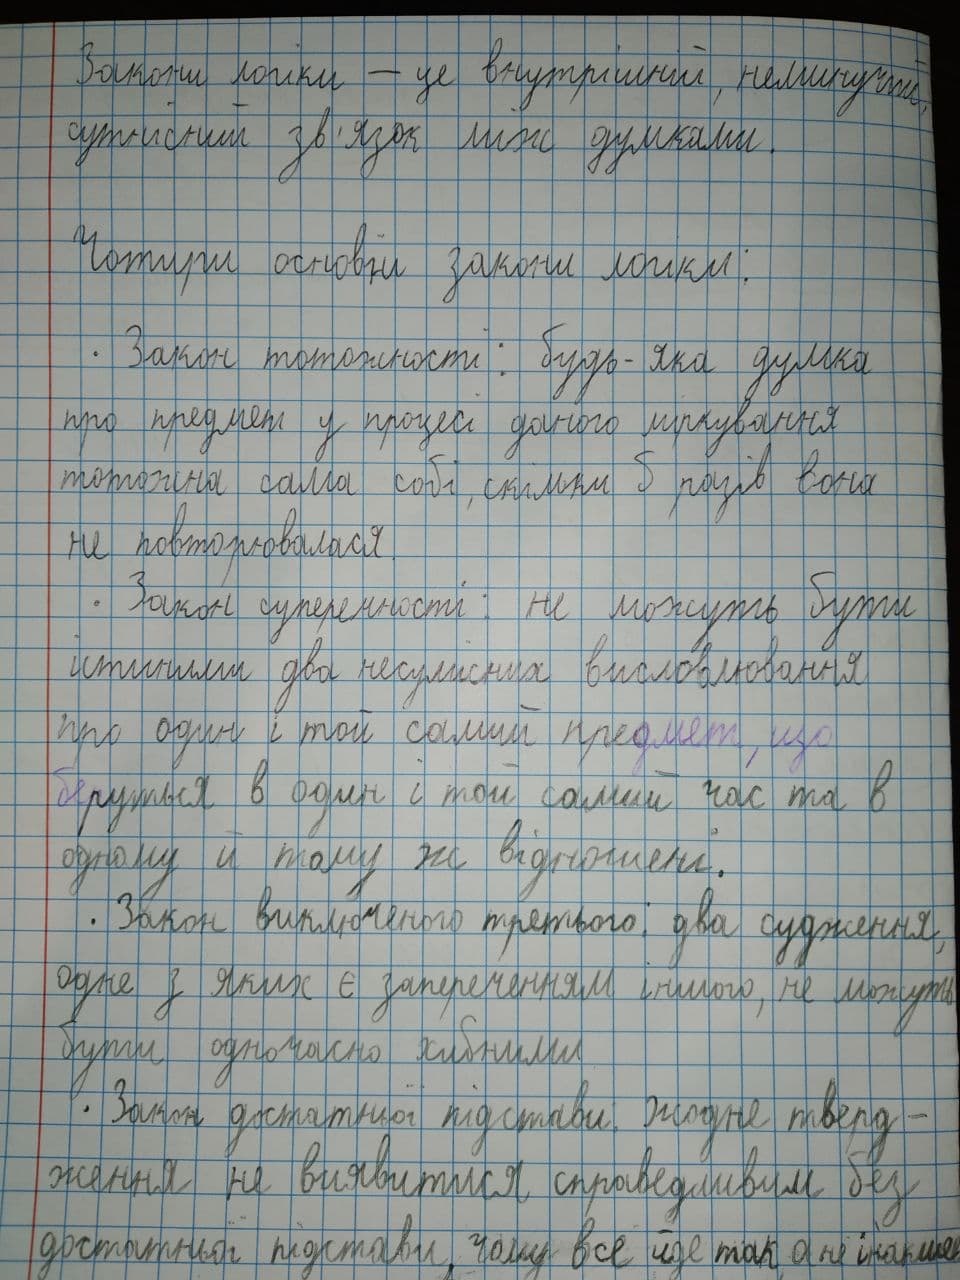 Закони логіки – це внутрішній, неминучий,
сутнісний зв'язок між думками.
Чотири основні закони логіки:
· Закон тотожності: будь-яка думка
про предмет у процесі даного міркування
тотожна сама собі, скільки б разів вона
не повторювалася.
· Закон суперечності: не можуть бути
істинними два несумісних висловлювання
про один і той самий предмет, що
беруться в один і той самий час та в
одному й тому ж відношенні.
· Закон виключеного третього: два судження,
одне з яких є запереченням іншого, не можуть
бути одночасно хибними
· Закон достатньої підстави: жодне тверд-
ження не виявитися справедливим без
достатньої підстави, чому все йде так, а не інакше